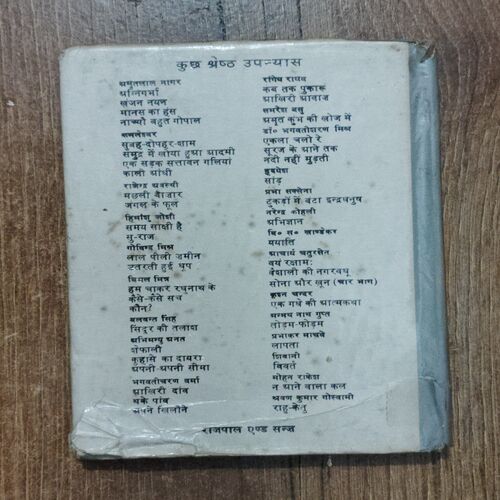 कुछ श्रेष्ठ उपन्यास
अमृतलाल नागर
अग्निगर्भा
खंजन नयन
मानस का हंस
नाच्यौ बहुत गोपाल
कमलेश्वर
सुबह-दोपहर-शाम
समुद्र में खोया हुआ आदमी
एक सड़क सत्तावन गलियां
काली आंधी
राजेन्द्र अवस्थी
मछली बाज़ार
जंगल के फूल
हिमांशु जोशी
समय साक्षी है
सु-राज
गोविन्द मिश्र
लाल पीली ज़मीन
उतरती हुई धूप
बिमल मित्र
हम चाकर रघुनाथ के
कैसे-कैसे सच
कौन?
बलवन्त सिंह
सिंदूर की तलाश
अभिमन्यु अनत
शेफाली
कुहासे का दायरा
अपनी-अपनी सीमा
भगवतीचरण वर्मा
आखिरी दांव
थके पांव
अपने खिलौने
रांगेय राघव
कब तक पुकारूं
आखिरी आवाज़
समरेश बसु
अमृत कुंभ की खोज में
डॉ० भगवतीशरण मिश्र
एकला चलो रे
सूरज के आने तक
नदी नहीं मुड़ती
हृदयेश
सांड़
प्रभा सक्सेना
टुकड़ों में बंटा इन्द्रधनुष
नरेन्द्र कोहली
अभिज्ञान
वि० स० खाण्डेकर
ययाति
आचार्य चतुरसेन
वयं रक्षामः
वैशाली की नगरवधू
सोना और खून (चार भाग)
कृश्न चन्दर
एक गधे की आत्मकथा
मन्मथ नाथ गुप्त
तोड़म-फोड़म
प्रभाकर माचवे
लापता
शिवानी
विवर्त
मोहन राकेश
न आने वाला कल
श्रवण कुमार गोस्वामी
राहु-केतु
राजपाल एण्ड सन्ज़